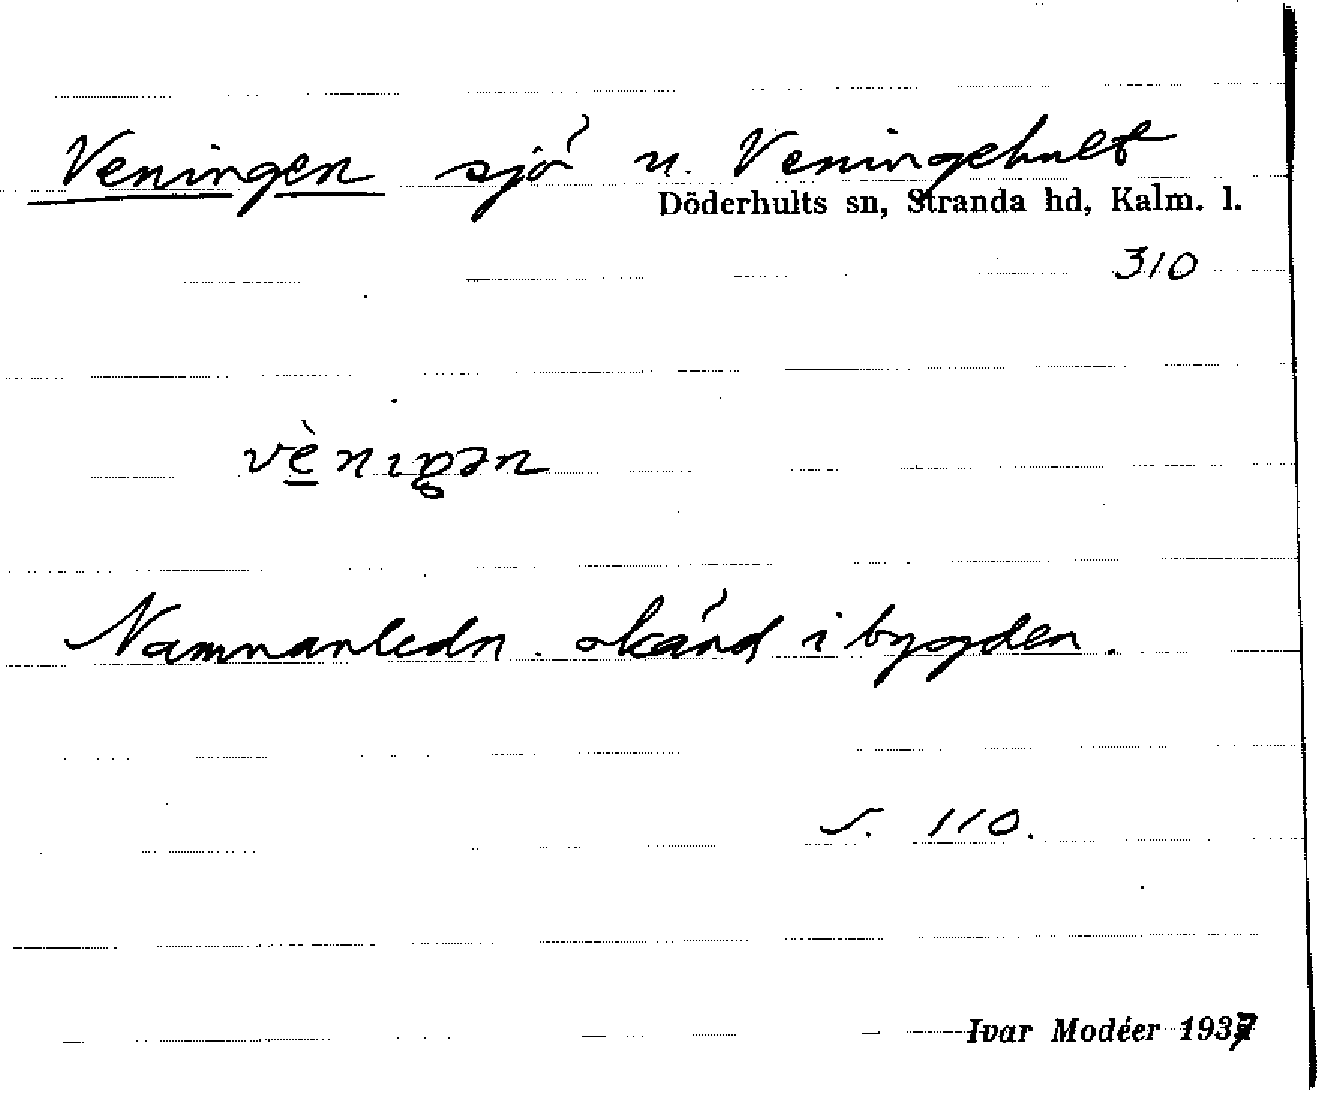 Veningen sjö n. Veningehult
Döderhults sn, Stranda hd, Kalm. l.
310
vè̱nıŋən
Namnanledn. okänd i bygden.
S. 110.
Ivar Modéer 1937